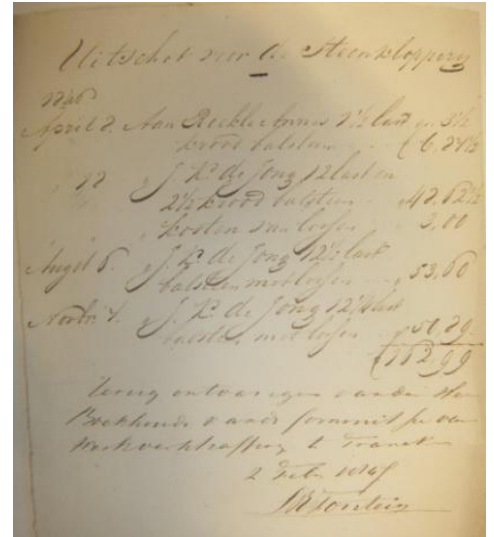 Uitschot voor de Steenklopperij
1846
April 2. Aan Reekle Annes 1½ last
krood balsteen 6,27½
" 17 " J. K. de Jong 12 last en
2½ krood balsteen " 42,62½
" kosten van lossen " 3,00
Augst 6. " J. K. de Jong 12½ last
balsteen met lossen " 53,60
Novbr 7. " J. K. de Jong 12½ last
balsteen met lossen
ƒ 162,99
terug ontvangen van den Heer
Boekhouder van de Commissie van
Werkverschaffing te Franeker
2 Feb. 1847
Fontein